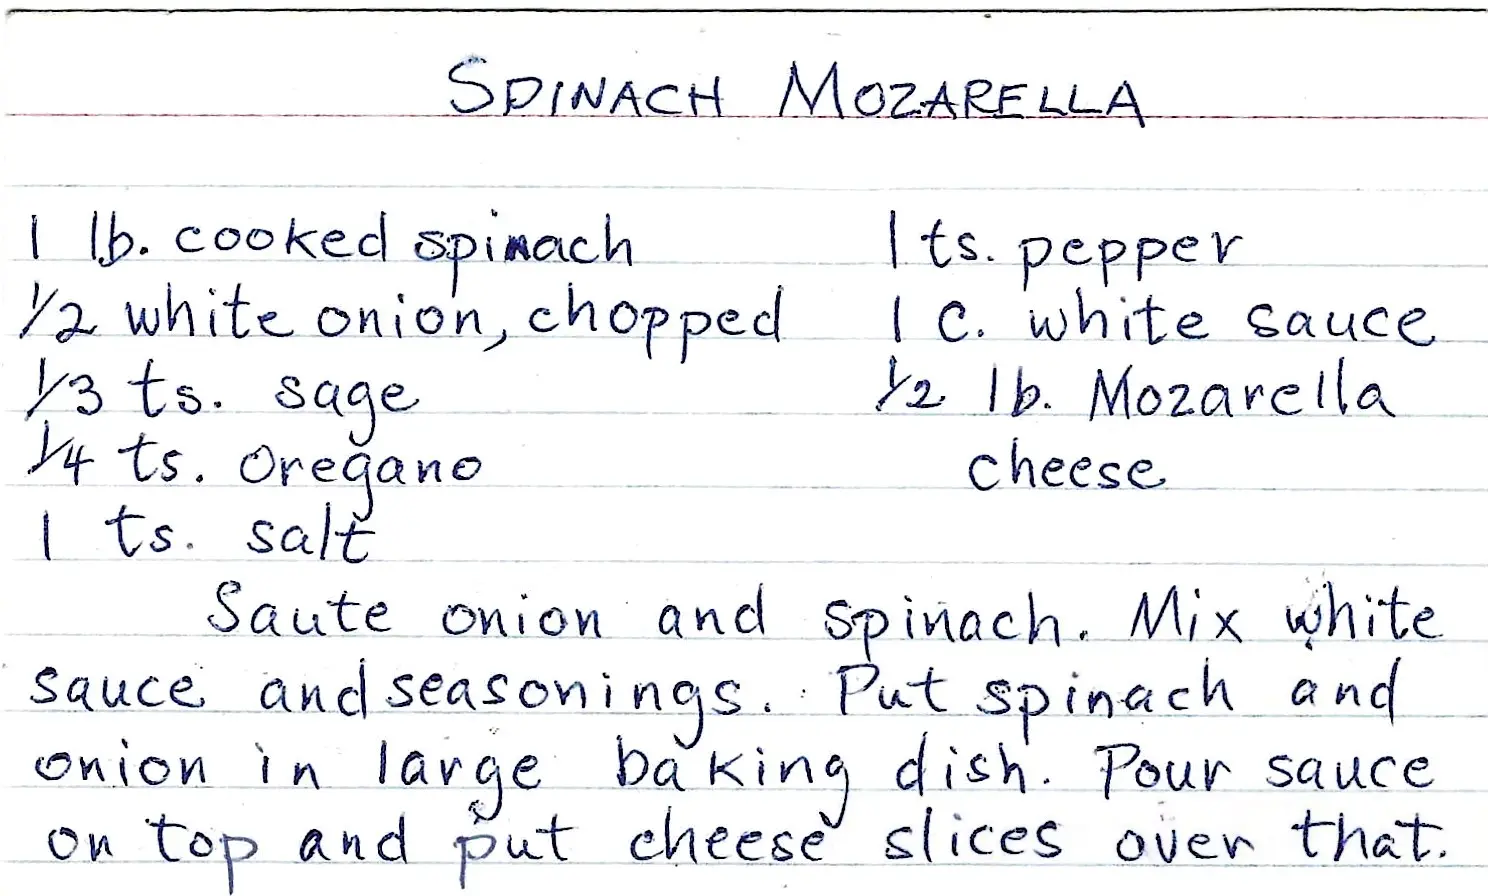 SPINACH MOZARELLA
1 lb. cooked spinach
1/2 white onion, chopped
1/3 ts. sage
1/4 ts. oregano
1 ts. salt
1 ts. pepper
1 C. white sauce
1/2 lb. Mozarella
cheese
Saute onion and spinach. Mix white
sauce and seasonings. Put spinach and
onion in large baking dish. Pour sauce
on top and put cheese slices over that.